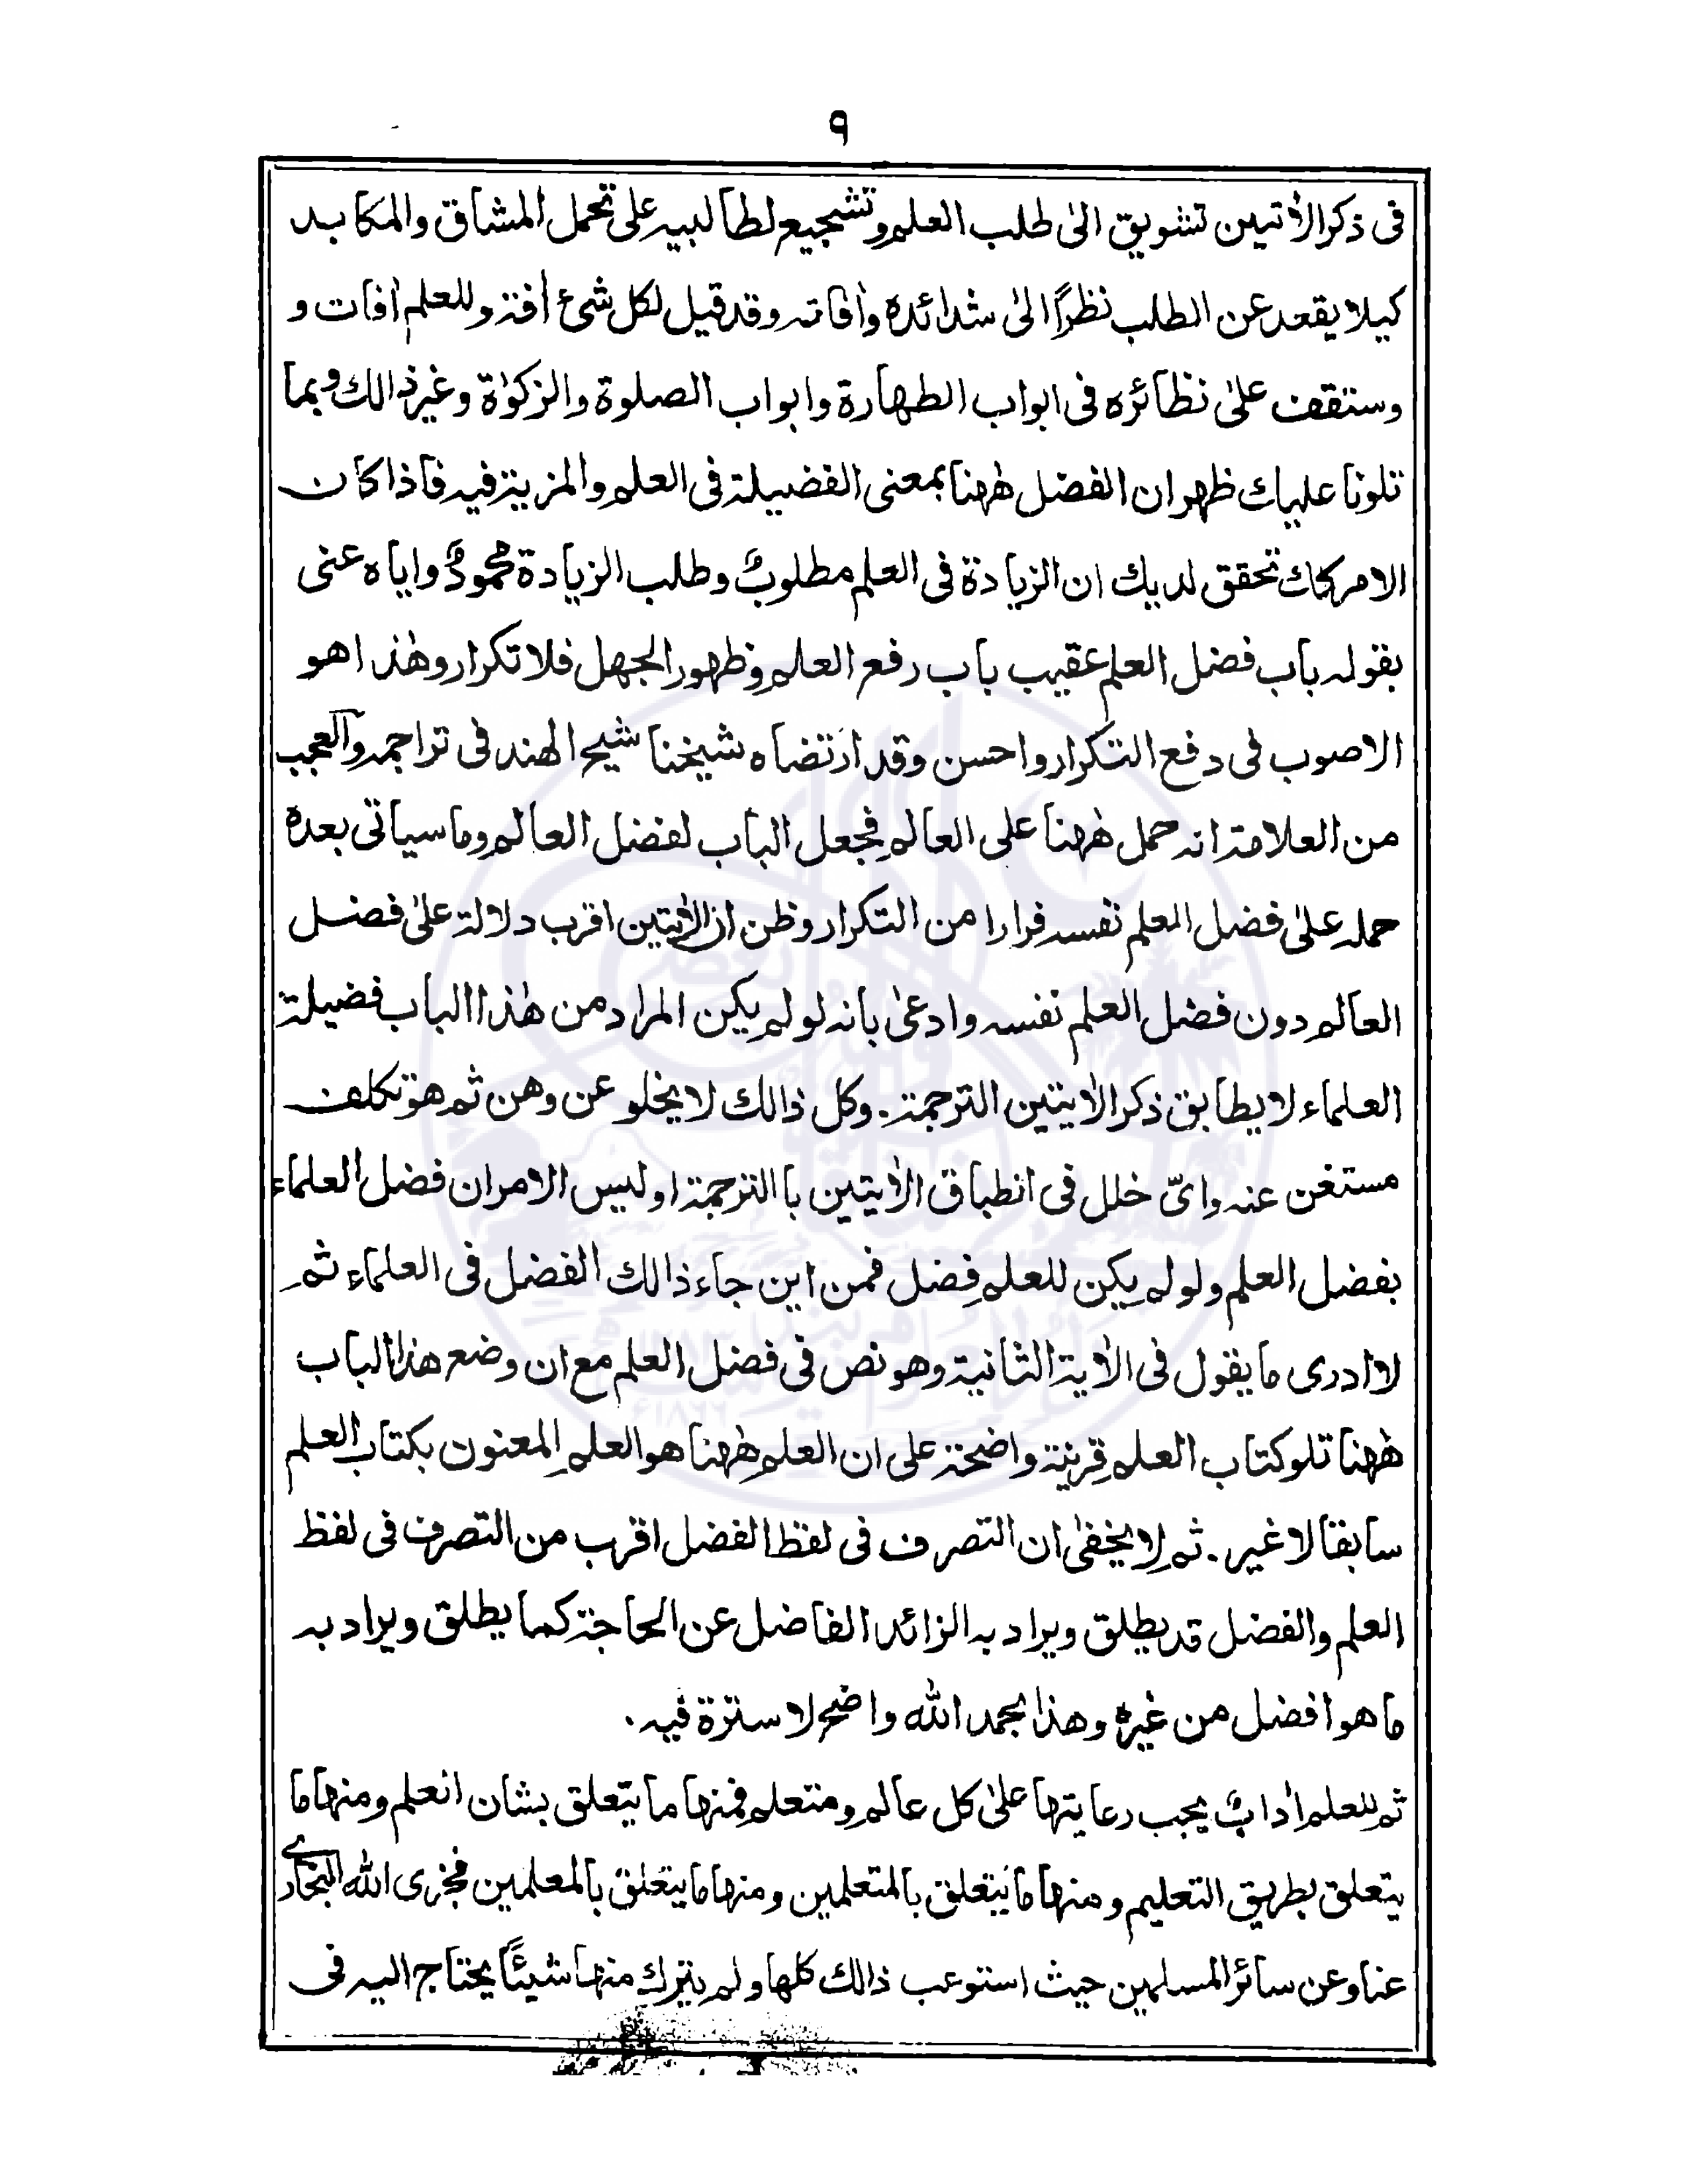 ٩
فی ذکر الأتیین تشویق الیٰ طلب العلم وتشجیع لطالبیه علی تحمل المشاق والمکابد
کیلا یقعد عن الطلب نظراً الیٰ شدائدہ واٰفاته وقد قیل لکل شیٔ اٰفة وللعلم اٰفات و
وستقف علیٰ نظائرہ فی ابواب الطهارة وابواب الصلوة والزکوٰة وغیر ذالك وبما
تلونا علیك ظهر ان الفضل هٰهنا بمعنی الفضیلة فی العلم والمزیة فیه فاذا کان
الامر کذٰلك تحقق لدیك ان الزیادة فی العلم مطلوبٌ وطلب الزیادة محمودٌ وایاہ عنی
بقوله باب فضل العلم عقیب باب رفع العلم وظهور الجهل فلا تکرار وهٰذا هو
الاصوب فی دفع التکرار واحسن وقد ارتضاہ شیخنا شیخ الهند فی تراجمه والعجب
من العلامة انه حمل هٰهنا علی العالم فجعل الباب لفضل العالم وما سیاتی بعدہ
حمله علیٰ فضل العلم نفسه فرارا من التکرار وظن ان الاٰیتین اقرب دلالة علیٰ فضل
العالم دون فضل العلم نفسه وادعیٰ بانه لو لم یکن المراد من هٰذا الباب فضیلة
العلماء لا یطابق ذکر الاٰیتین الترجمة. وکل ذالك لا یخلو عن وهن ثم هو تکلف
مستغن عنه وایّ خلل فی انطباق الاٰیتین باالترجمة اولیس الامر ان فضل العلماء
بفضل العلم ولو لم یکن للعلم فضل فمن این جاء ذالك الفضل فی العلماء ثم
لا ادری ما یقول فی الاٰیة الثانیة وهو نص فی فضل العلم مع ان وضع هذا الباب
هٰهنا تلو کتاب العلم قرینة واضحة علی ان العلم هٰهنا هو العلم المعنون بکتاب العلم
سابقا لا غیر. ثم لا یخفیٰ ان التصرف فی لفظ الفضل اقرب من التصرف فی لفظ
العلم والفضل قد یطلق ویراد به الزائد الفاضل عن الحاجة کما یطلق ویراد به
ما هو افضل من غیرہ وهذا بحمد الله واضح لا سترة فیه.
ثم للعلم اٰدابٌ یجب رعایتها علیٰ کل عالم ومتعلم فمنها ما یتعلق بشان العلم ومنها ما
یتعلق بطریق التعلیم ومنها ما یتعلق بالمتعلمین ومنها ما یتعلق بالمعلمین فجزی الله البخاری
عنا وعن سائر المسلمین حیث استوعب ذالك کلها ولم یترك منها شیئاً یحتاج الیه فی